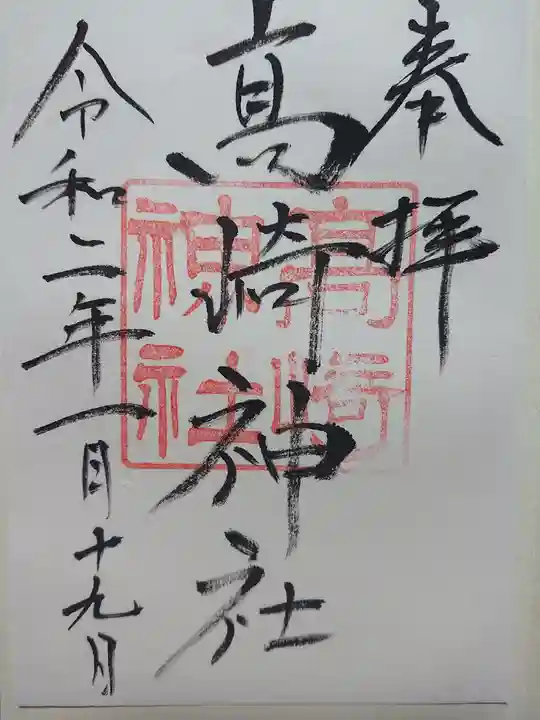 奉拝
高崎神社
令和二年一月十九月
高崎
神社